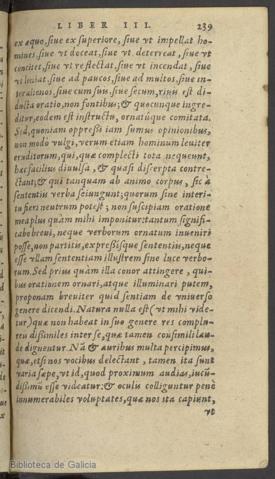 LIBER III. 239
ex æquo, siue ex superiore, siue vt impellat ho-
mines, siue vt doceat, siue vt deterreat, siue vt
concitet, siue vt reflectat, siue vt incendat, siue
vt leniat, siue ad paucos, siue ad multos, siue in-
ter alienos, siue cum suis, siue secum, riuis est di-
ducta oratio, non fontibus: & quocunque ingre-
ditur, eodem est instructu, ornatúque comitata.
Sed, quoniam oppressi iam sumus opinionibus,
non modò vulgi, verum etiam hominum leuiter
eruditorum, qui, quæ complecti tota nequeunt,
hæc faciliùs diuulsa, & quasi discerpta contre-
ctant: & qui tanquam ab animo corpus, sic à
sententiis verba seiungunt; quorum sine interi-
tu fieri neutrum potest: non suscipiam oratione
mea plus quàm mihi imponitur: tantum signifi-
cabo breui, neque verborum ornatum inueniri
posse, non partitis, expressísque sententiis, neque
esse vllam sententiam illustrem sine luce verbo-
rum. Sed priùs quàm illa conor attingere, qui-
bus orationem ornari, atque illuminari putem,
proponam breuiter quid sentiam de vniuerso
genere dicendi. Natura nulla est (vt mihi vide-
tur) quæ non habeat in suo genere res complu-
res dissimiles inter se, quæ tamen consimili lau-
de dignentur. Nā & auribus multa percipimus,
quæ, etsi nos vocibus delectant, tamen ita sunt
varia sæpe, vt id, quod proximum audias, iucū-
dissimū esse videatur: & oculis colliguntur penè
innumerabiles voluptates, quæ nos ita capiunt,
vt
Biblioteca de Galicia